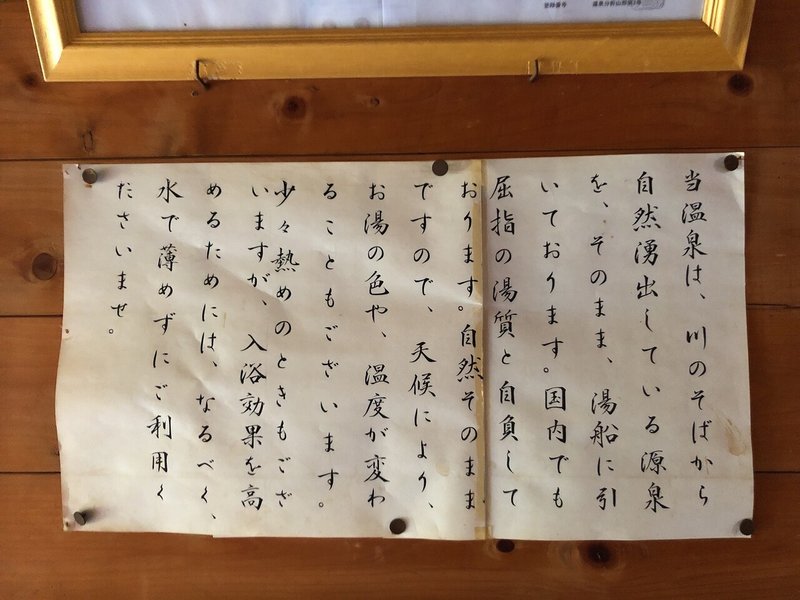 登録番号 温泉分析山形第2号
当温泉は、川のそばから
自然湧出している源泉
を、そのまま、湯船に引
いております。国内でも
屈指の湯質と自負して
おります。自然そのまま
ですので、天候により、
お湯の色や、温度が変わ
ることもございます。
少々熱めのときもござ
いますが、入浴効果を高
めるためには、なるべく、
水で薄めずにご利用く
ださいませ。